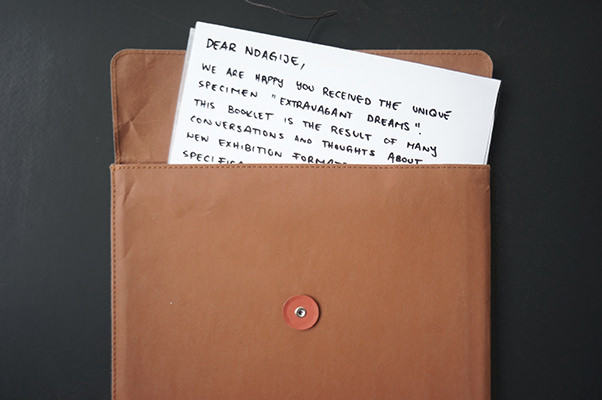 DEAR NDAGIJE,
WE ARE HAPPY YOU RECEIVED THE UNIQUE
SPECIMEN "EXTRAVAGANT DREAMS".
THIS BOOKLET IS THE RESULT OF MANY
CONVERSATIONS AND THOUGHTS ABOUT
NEW EXHIBITION